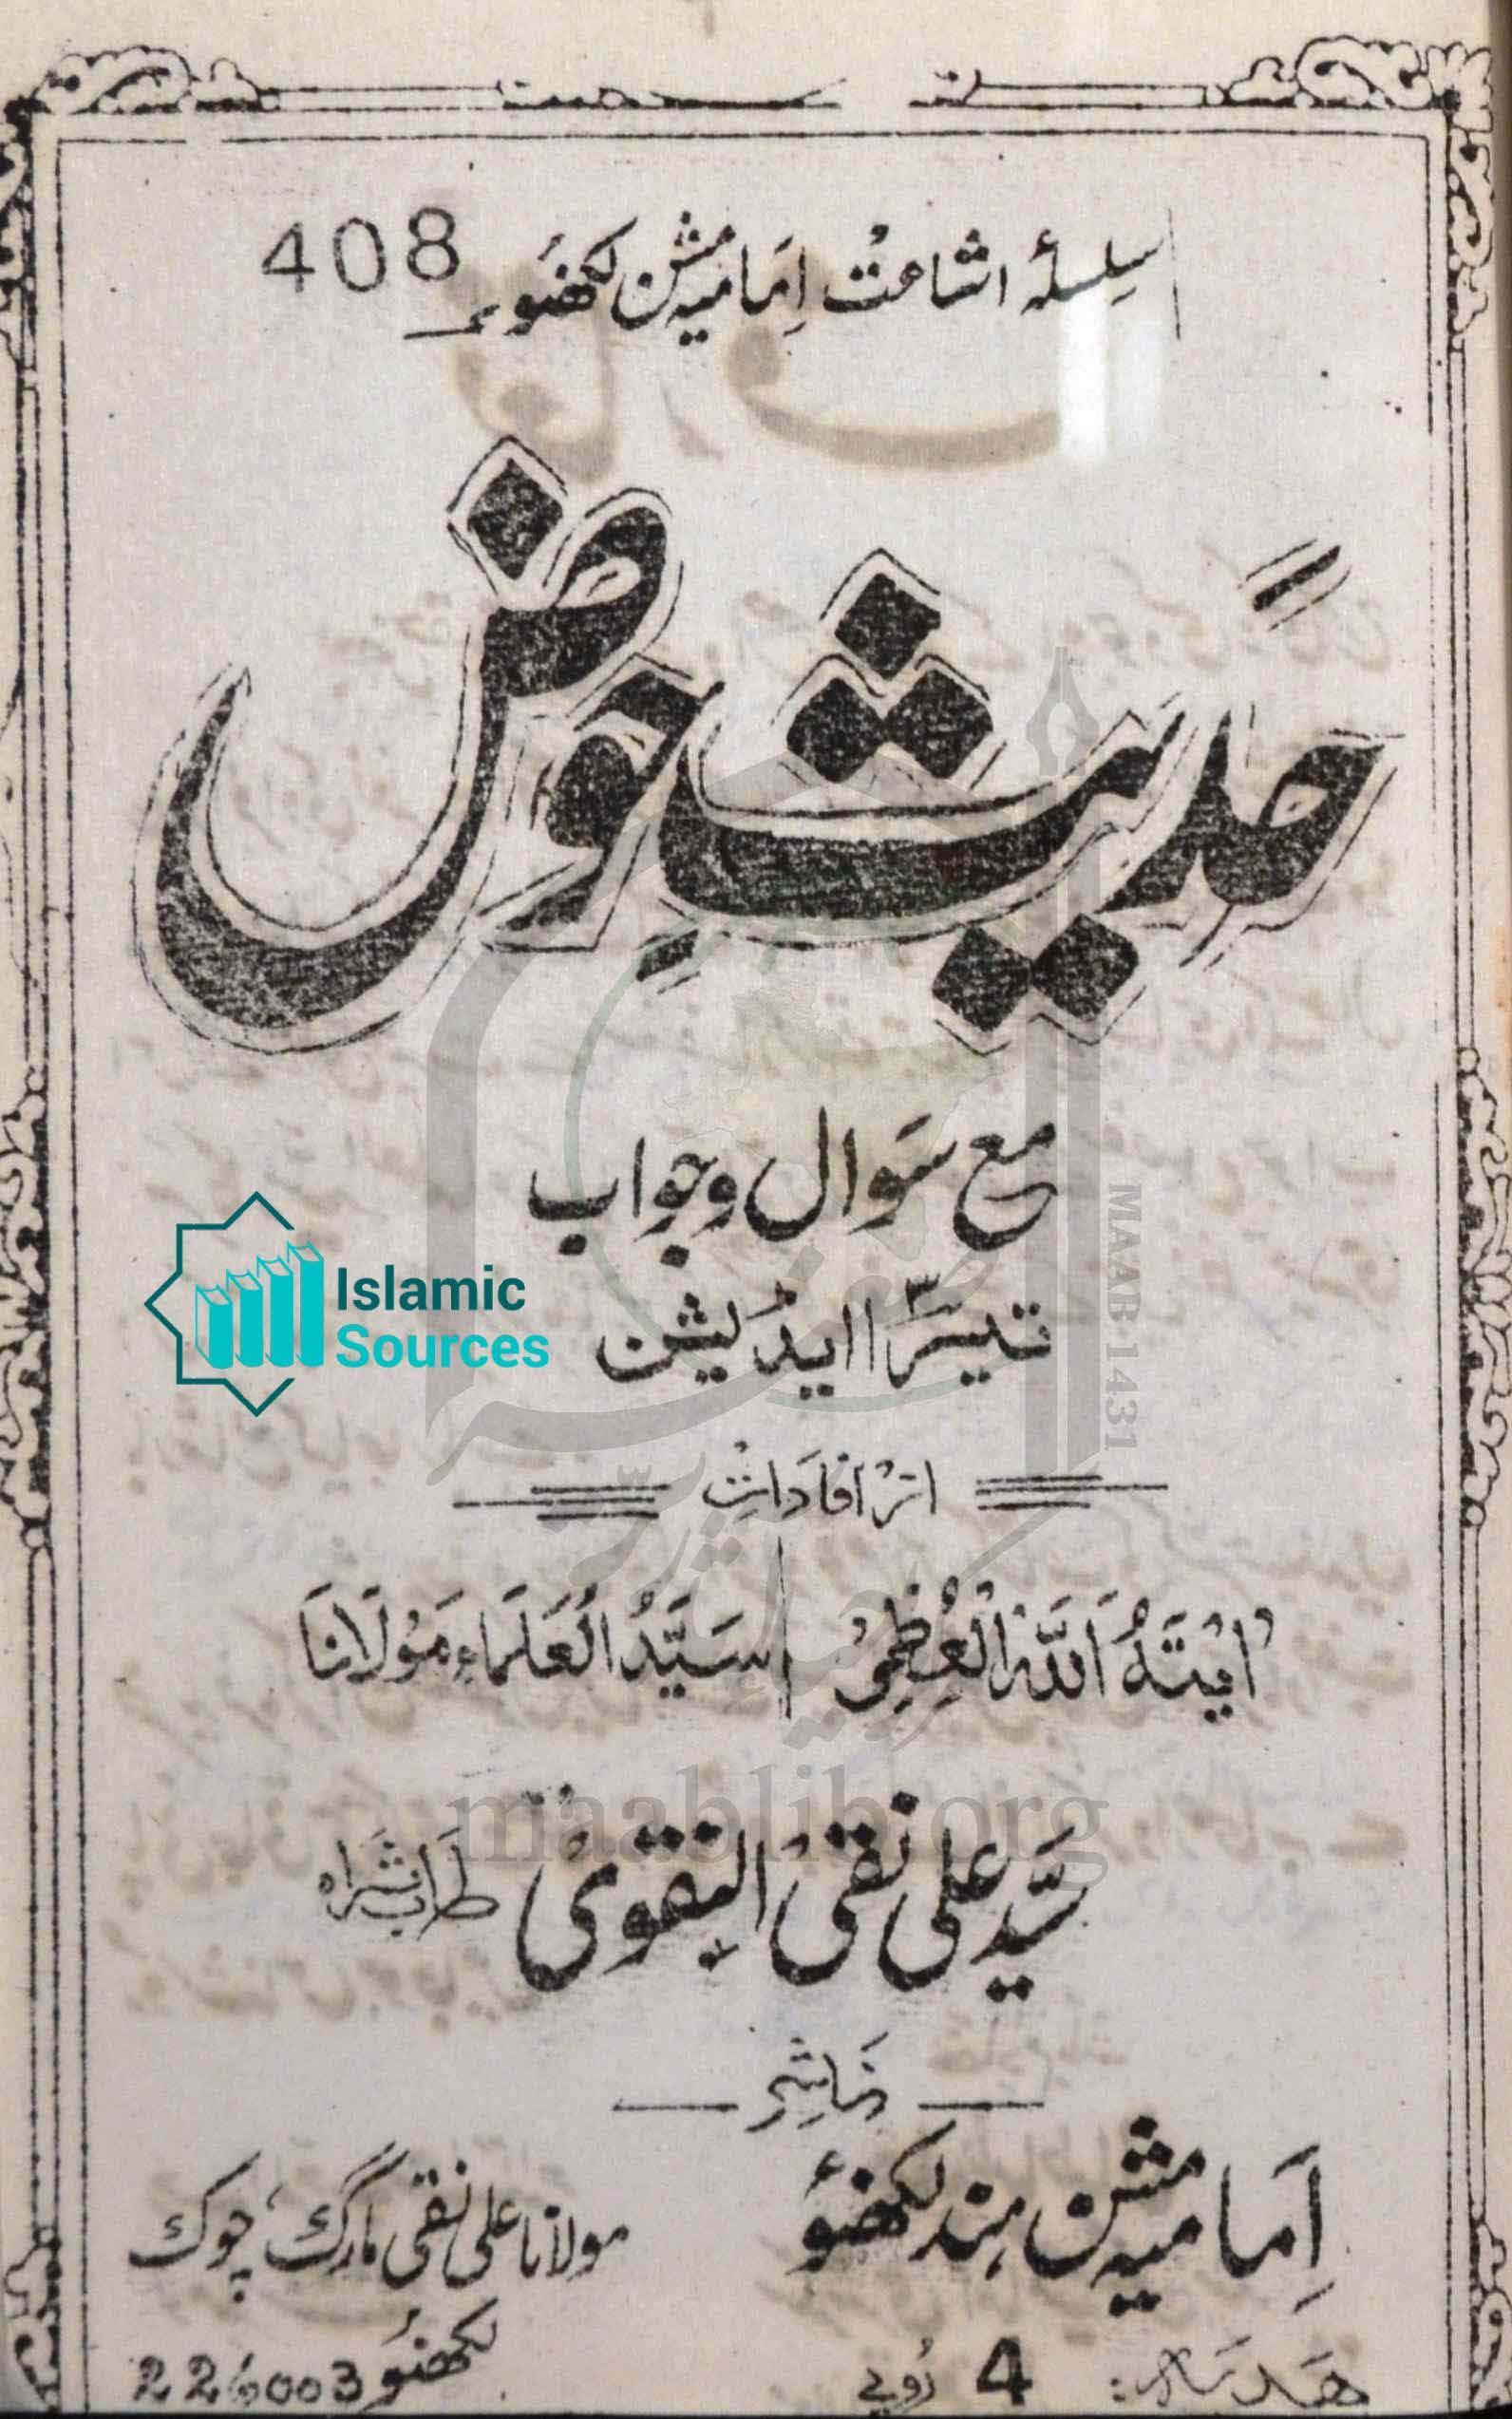 سلسلۂ اشاعت امامیہ مشن لکھنؤ نمبر 408
حدیثِ حوض
مع سوال و جواب
تیسرا ایڈیشن
Islamic
Sources
MAAB 1431
از افادات
آیتہ اللہ العظمیٰ سید العلماء مولانا
سید علی نقی النقوی طاب ثراہ
maablib.org
ناشر
امامیہ مشن ہند لکھنؤ
مولانا علی نقی مارگ، چوک
لکھنؤ 226003
ھدیہ: 4 روپے